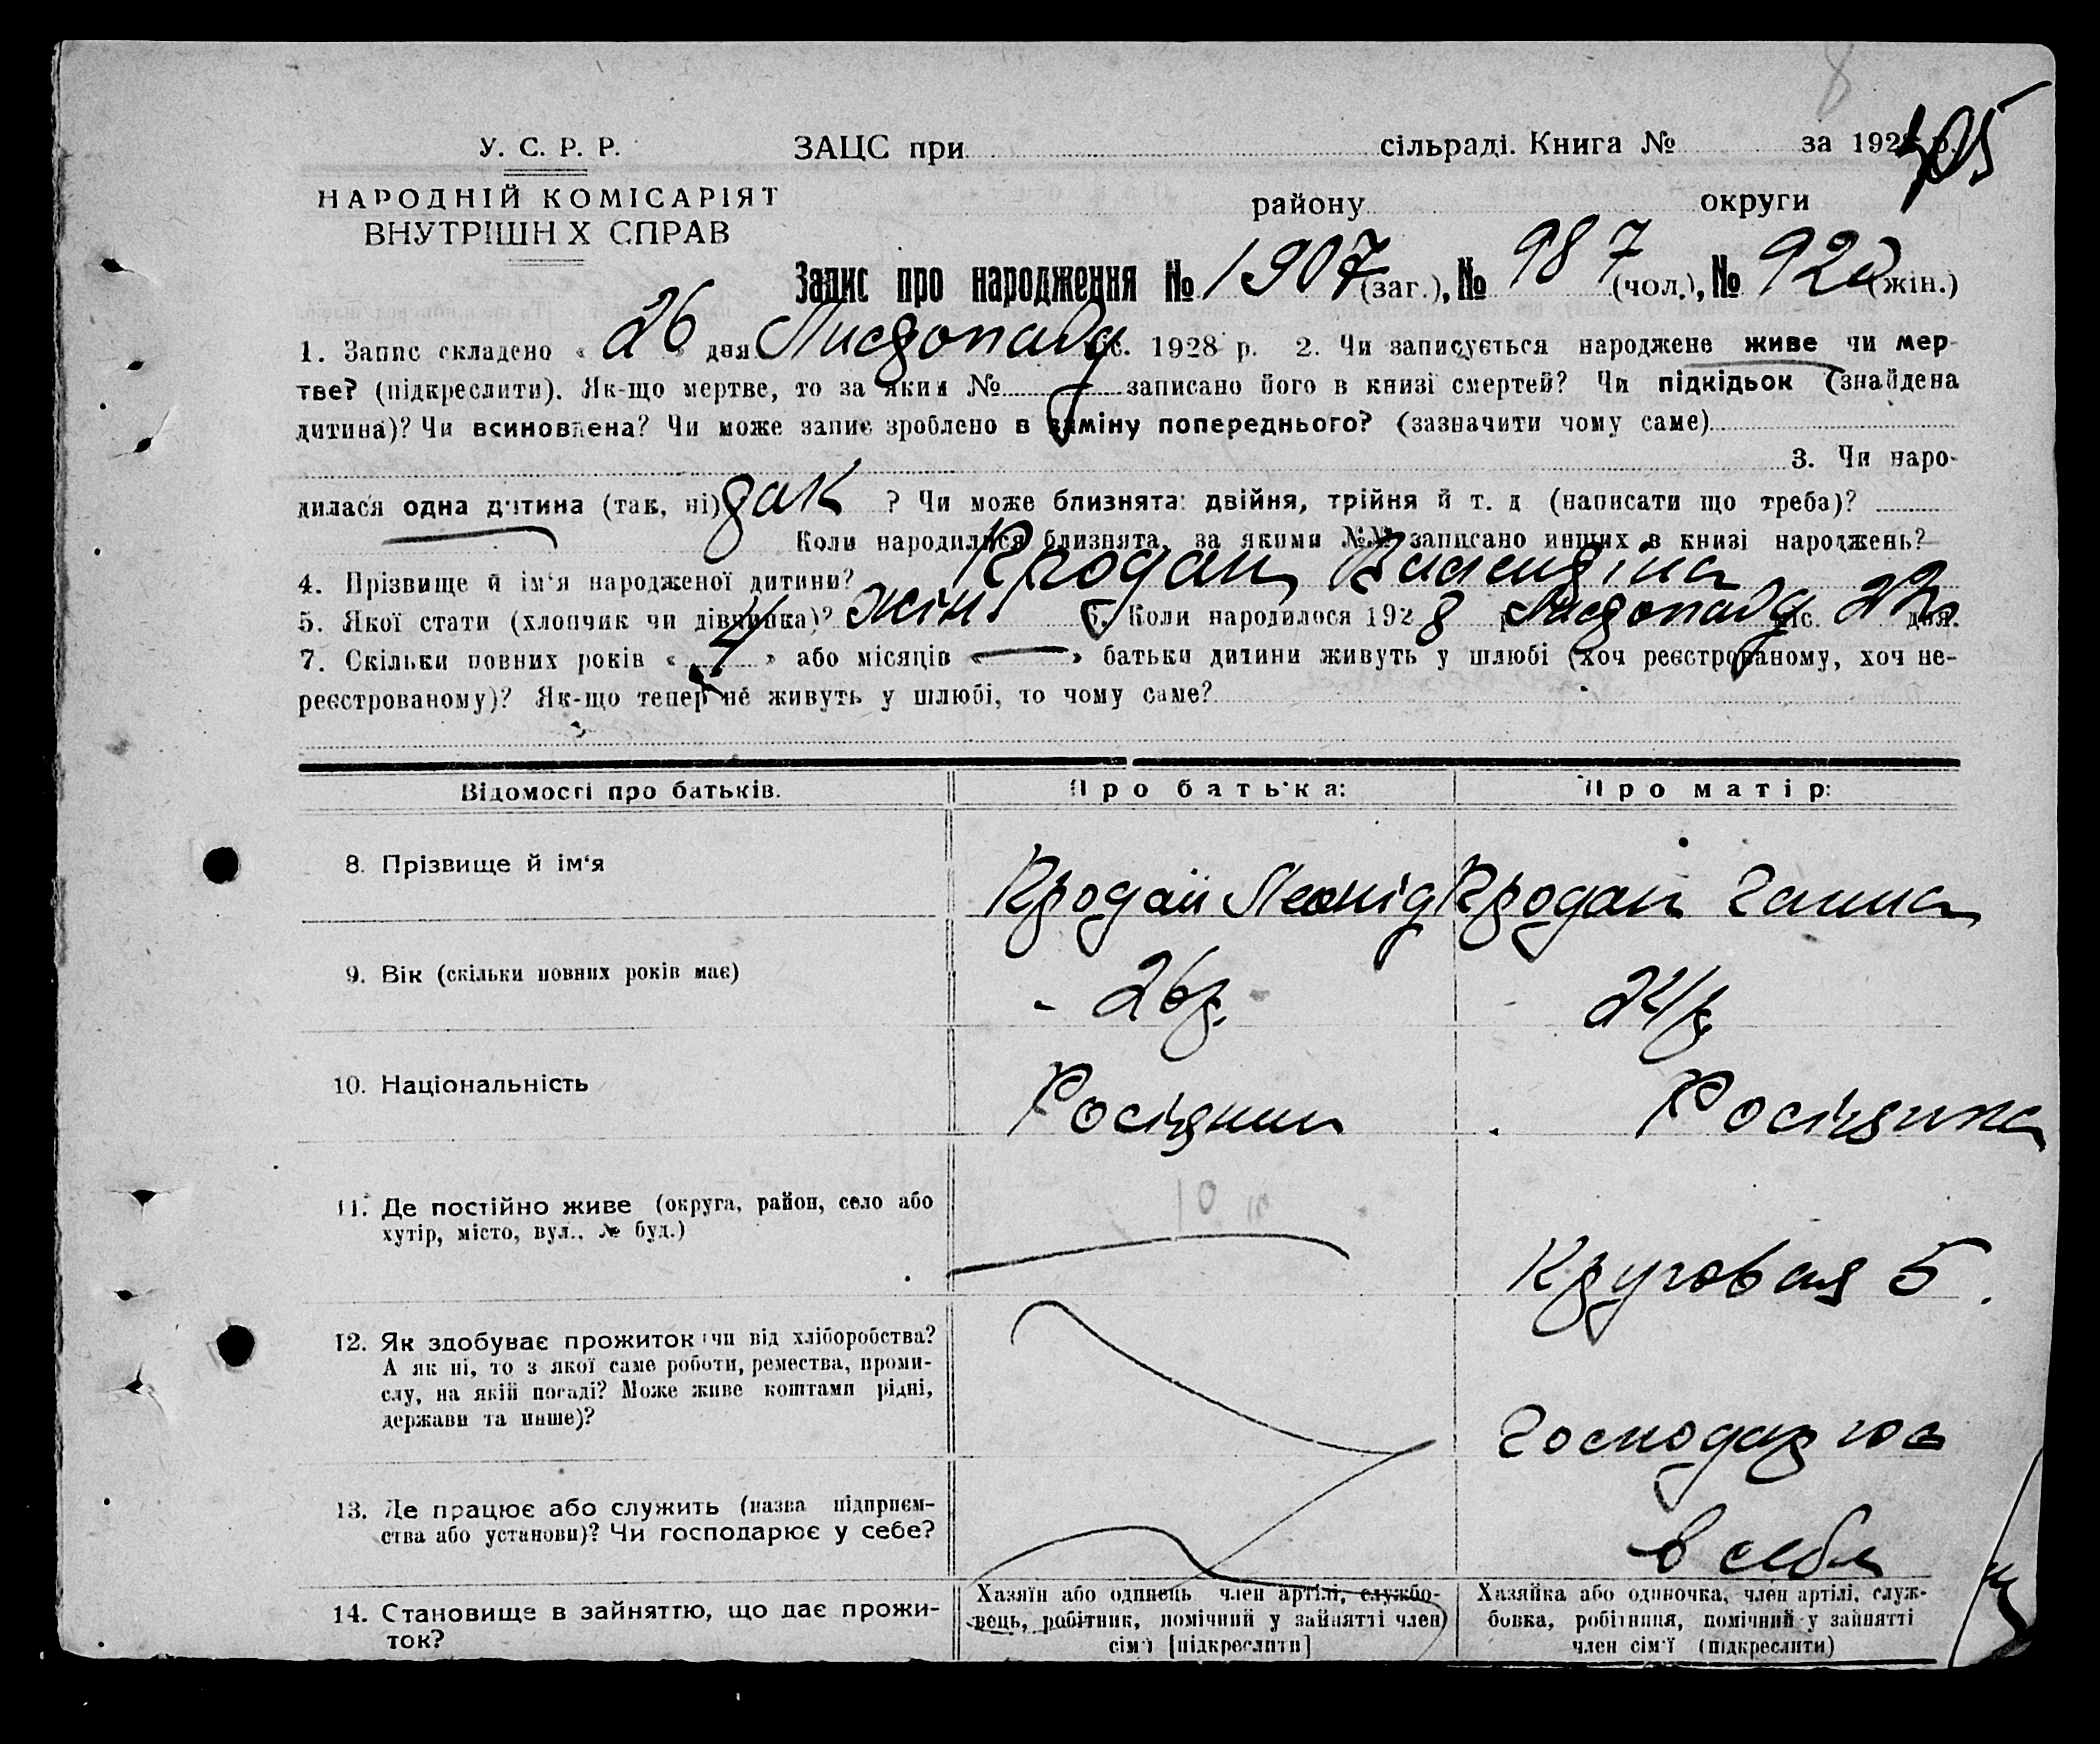 8
405
У. С. Р. Р. ЗАЦС при сільраді. Книга № за 1928 р.
НАРОДНІЙ КОМІСАРІЯТ
ВНУТРІШН Х СПРАВ
району округи
Запис про народження № 1907 (заг.), № 987 (чол.), № 920 (жін.)
1. Запис складено « 26 » дня Листопаду міс. 1928 р. 2. Чи записується народжене живе чи мер-
тве? (підкреслити). Як-що мертве, то за яким № записано його в книзі смертей? Чи підкідьок (знайдена
дитина)? Чи всиновлена? Чи може запис зроблено в заміну попереднього? (зазначити чому саме)
3. Чи наро-
дилася одна дитина (так, ні) так ? Чи може близнята: двійня, трійня й т. д (написати що треба)?
Коли народилися близнята, за якими №№ записано инших в книзі народжень?
4. Прізвище й ім‘я народженої дитини? Кродан Валентіна
5. Якої стати (хлопчик чи дівчинка)? жін. 6. Коли народилося 1928 р. Листопаду міс. 22 дня.
7. Скільки повних років « 4 » або місяців « — » батьки дитини живуть у шлюбі (хоч реєстрованому, хоч не-
реєстрованому)? Як-що тепер не живуть у шлюбі, то чому саме?
Відомості про батьків. Про батька: Про матір:
8. Прізвище й ім‘я Кродан Леонід Кродан Ганна
9. Вік (скільки повних років має) 26 р. 24 р.
10. Національність Росіянин Росіянка
11. Де постійно живе (округа, район, село або
хутір, місто, вул., № буд.)
Круговая 5.
12. Як здобуває прожиток (чи від хліборобства?
А як ні, то з якої саме роботи, ремества, проми-
слу, на якій посаді? Може живе коштами рідні,
держави та инше)?
Господарює
13. Де працює або служить (назва підприєм-
ства або установи)? Чи господарює у себе?
в себе
14. Становище в зайняттю, що дає прожи-
ток?
Хазяїн або одинець член артілі, службо-
вець, робітник, помічний у зайнятті член
сім‘ї [підкреслити]
Хазяйка або одиночка, член артілі, служ-
бовка, робітниця, помічний у зайнятті
член сім‘ї (підкреслити)